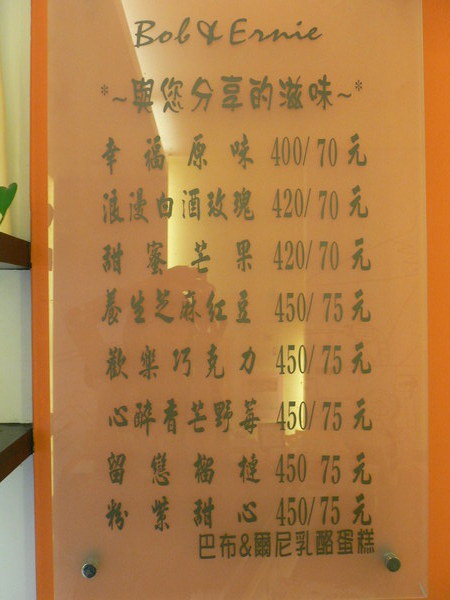 Bob & Ernie
*~與您分享的滋味~*
幸福原味 400/70元
浪漫白酒玫瑰 420/70元
甜蜜芒果 420/70元
養生芝麻紅豆 450/75元
歡樂巧克力 450/75元
心醉香芒野莓 450/75元
留戀榴槤 450 75元
粉紫甜心 450/75元
巴布&爾尼乳酪蛋糕